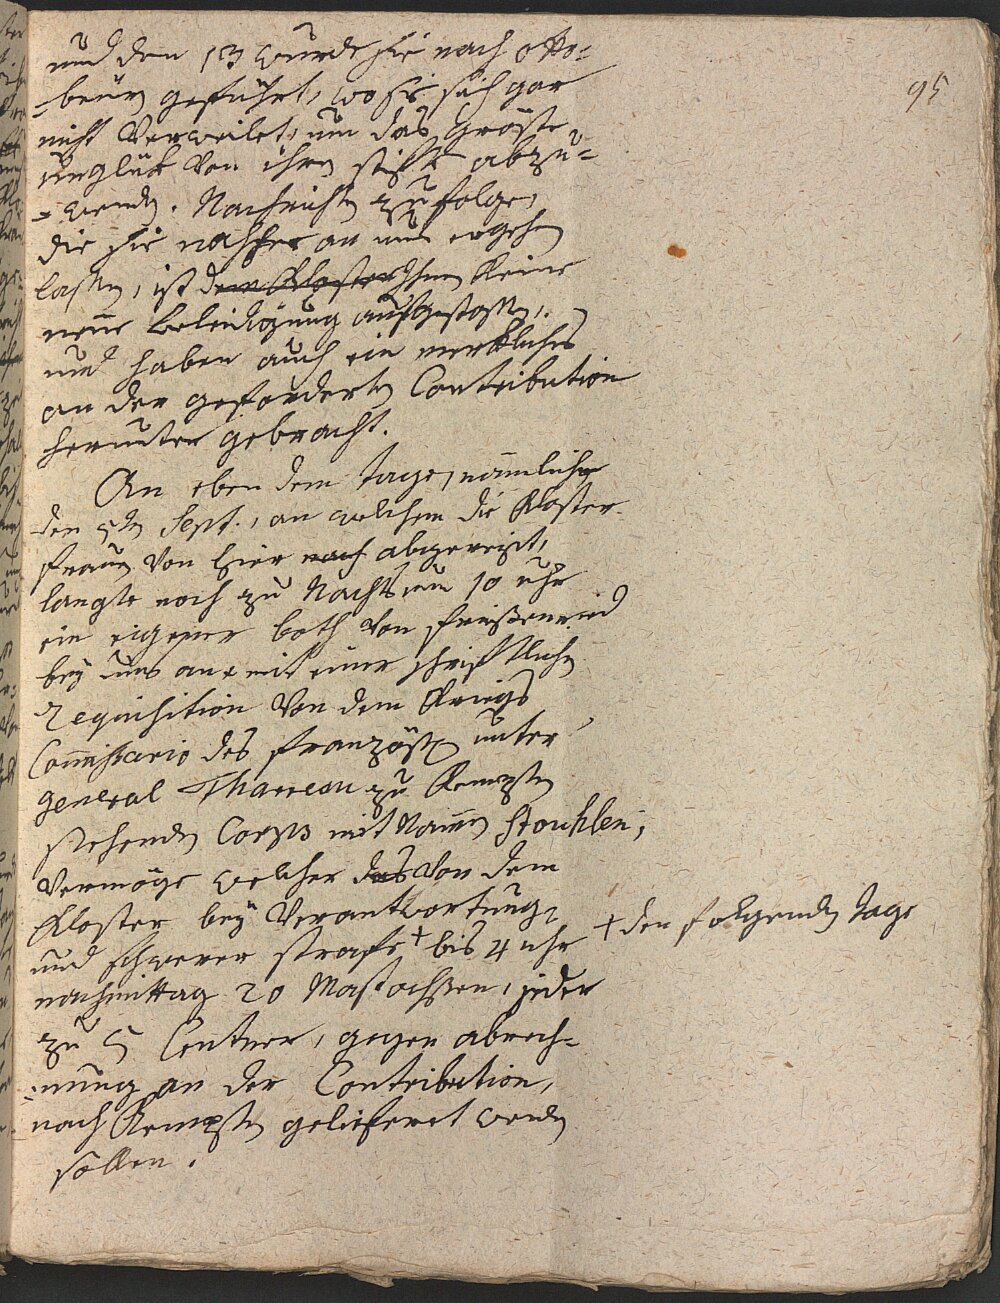 95
und den 13 wurde sie nach Otto-
-beürn geführt, wo sie sich gar
nicht verweilet, um das gröste
unglük von ihrem stifte abzu-
-wenden. Nachrichten zufolge,
die sie nachher an uns ergehen
lassen, ist dem Kloster Ihnen keine
neue Beleidigung aufgestossen,
und haben auch ein merkliches
an der geforderten Contribution
herunter gebracht.
An eben dem tage, nämlichen
den 5ten Sept., an welchem die Kloster-
frauen von hier nach abgereist,
langte noch zu Nachts um 10 uhr
ein eigener both von
bey uns an mit einer schriftlichen
requisition von dem Kriegs
Commissario des französischen unter
general Tharreau zu Kempten
stehenden Corps mit Namen Stouhlen,
vermöge welcher das von dem
Kloster bey Verantwortung,
und schwerer strafe + bis 4 uhr
nachmittag 20 Mastochsen, jeder
zu 5 Centner, gegen abrech-
-nung an der Contribution,
nach Kempten geliefert werden
sollen.
+ den folgenden tage